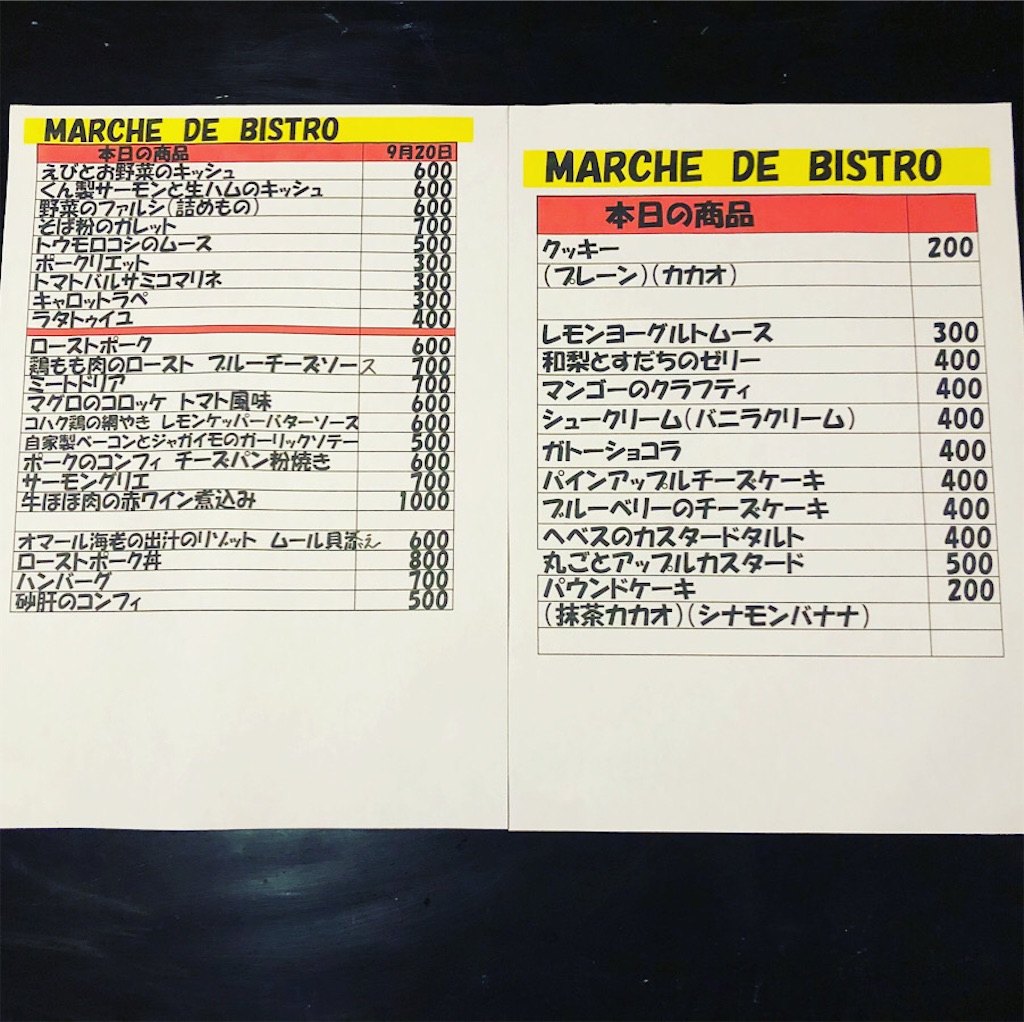 MARCHE DE BISTRO
本日の商品 9月20日
えびとお野菜のキッシュ 600
くん製サーモンと生ハムのキッシュ 600
野菜のファルシ(詰めもの) 600
そば粉のガレット 700
トウモロコシのムース 500
ポークリエット 300
トマトバルサミコマリネ 300
キャロットラペ 300
ラタトゥイユ 400
ローストポーク 600
鶏もも肉のロースト ブルーチーズソース 700
ミートドリア 700
マグロのコロッケ トマト風味 600
コハク鶏の網やき レモンケッパーバターソース 600
自家製ベーコンとジャガイモのガーリックソテー 500
ポークのコンフィ チーズパン粉焼き 600
サーモングリエ 700
牛ほほ肉の赤ワイン煮込み 1000
オマール海老の出汁のリゾット ムール貝添え 600
ローストポーク丼 800
ハンバーグ 700
砂肝のコンフィ 500
MARCHE DE BISTRO
本日の商品
クッキー 200
(プレーン)(カカオ)
レモンヨーグルトムース 300
和梨とすだちのゼリー 400
マンゴーのクラフティ 400
シュークリーム(バニラクリーム) 400
ガトーショコラ 400
パインアップルチーズケーキ 400
ブルーベリーのチーズケーキ 400
ヘベスのカスタードタルト 400
丸ごとアップルカスタード 500
パウンドケーキ 200
(抹茶カカオ)(シナモンバナナ)